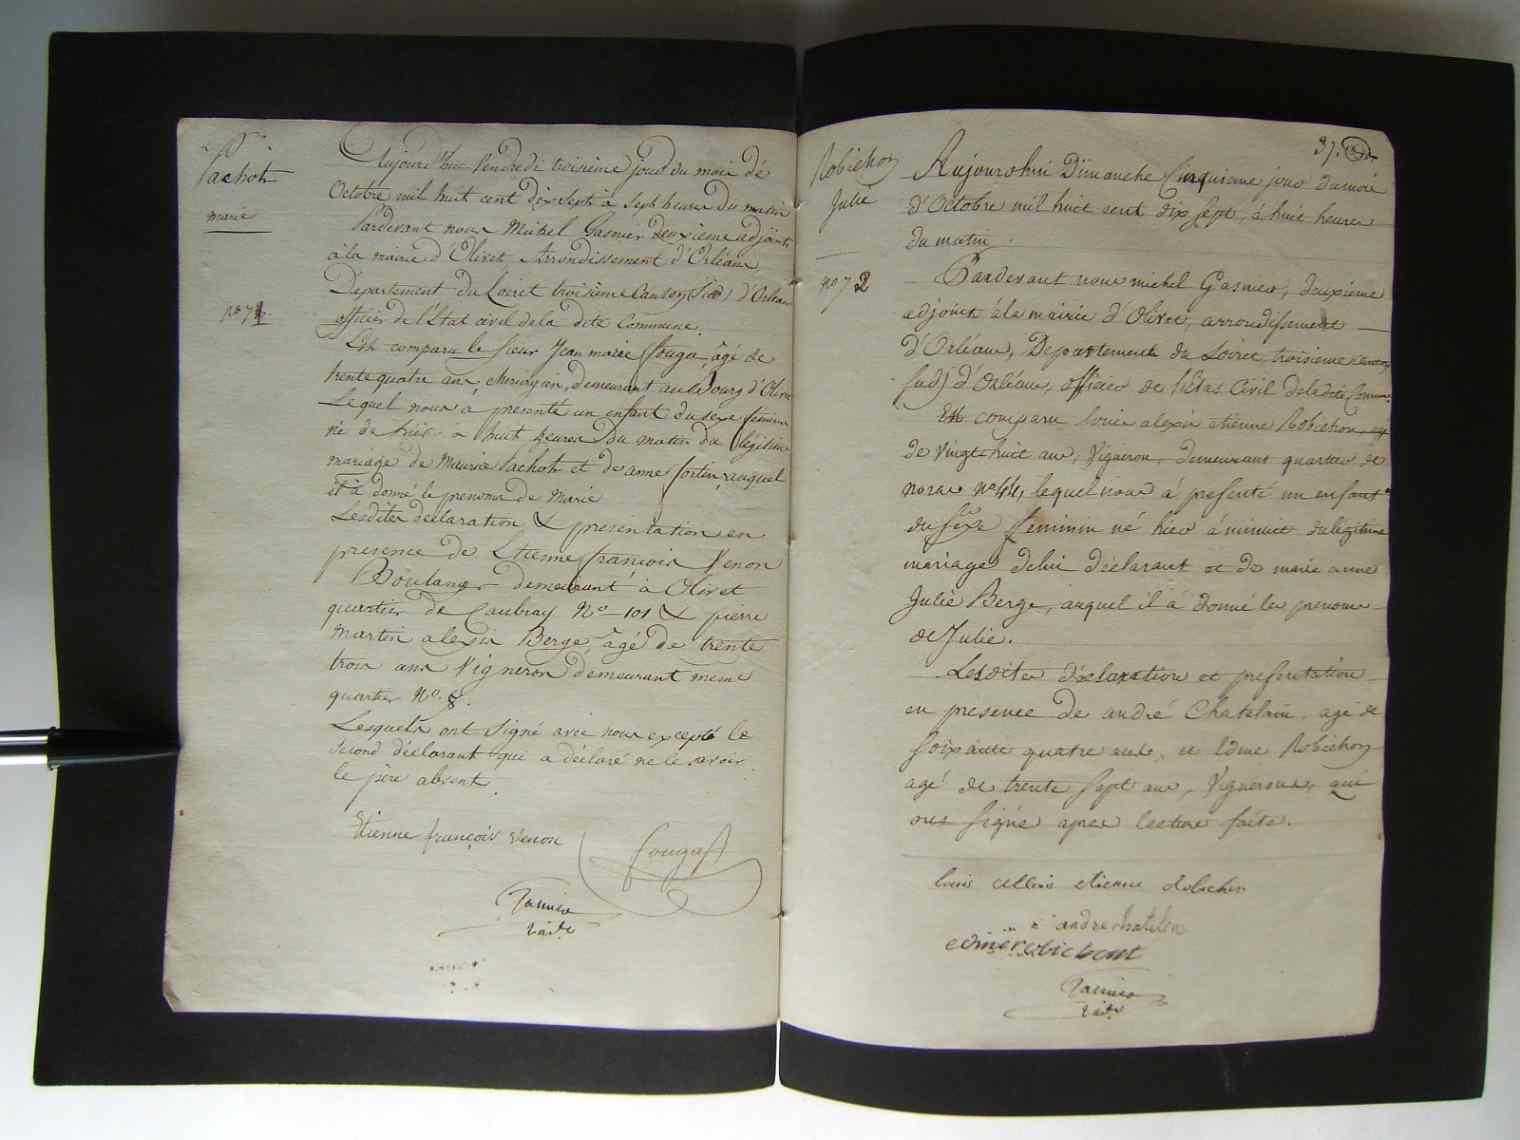 Sachot
marie
no 71
Aujourd'hui Vendredi troisième jour du mois de
Octobre mil huit cent dix sept à sept heures du matin
Pardevant nous Michel Gasnier deuxieme adjoint
à la mairie d'Olivet Arrondissement d'Orléans
Département du Loiret troisième Canton (Sud) d'Orléans
officier de l'État civil de la dite Commune.
Est comparu le Sieur Jean marie fougas, âgé de
trente quatre ans chirurgien, demeurant au Bourg d'Olivet
Lequel nous a présenté un enfant du sexe féminin
né de hier à huit heures du matin du légitime
mariage de Maurice Sachot et de anne fortin, auquel
il a donné le prenoms de Marie
Lesdites déclaration & présentation en
presence de Etienne françois Venon
Boulanger demeurant à Olivet
quartier de Caubray No 101 & pierre
Martin alexis Berge, âgé de trente
trois ans Vigneron demeurant meme
quartier No. 8.
Lesquels ont Signé avec nous excepté le
second déclarant que a déclaré ne le savoir
le père absent.
Etienne françois venon
fougas
37.
Robichon
Julie
no 72
Aujourdhui Dimanche Cinquieme jour du mois
d'Octobre mil huit cent dix sept, à huit heures
du matin.
Pardevant nous michel Gasnier, deuxieme
adjoint à la mairie d'Olivet, arrondissement
D'Orléans, Departement du Loiret, troisieme Canton
sud) d'Orléans, officier de l'état Civil de la dite Commune.
Est comparu Louis alexis etienne Robichon, agé
de vingt huit ans, Vigneron, demeurant quartier de
noras No 44, lequel nous à presenté un enfant
du sexe feminin né hier à minuit du légitime
mariage de lui déclarant et de marie anne
Julie Berge, auquel il à donné les prenoms
de Julie.
Lesdites déclaration et presentation
en presence de andré Chatelain, agé de
soixante quatre ans, et Edme Robichon
agé de trente sept ans, Vignerons, qui
ont signé apres lecture faite.
andre chatelin
edme robichont